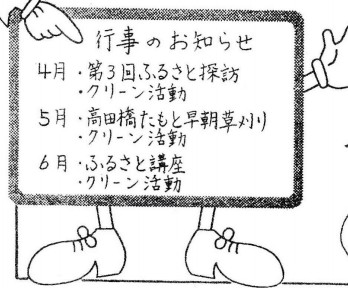 行事のお知らせ
4月・第3回ふるさと探訪
・クリーン活動
5月・高田橋たもと早朝草刈り
・クリーン活動
6月・ふるさと講座
・クリーン活動